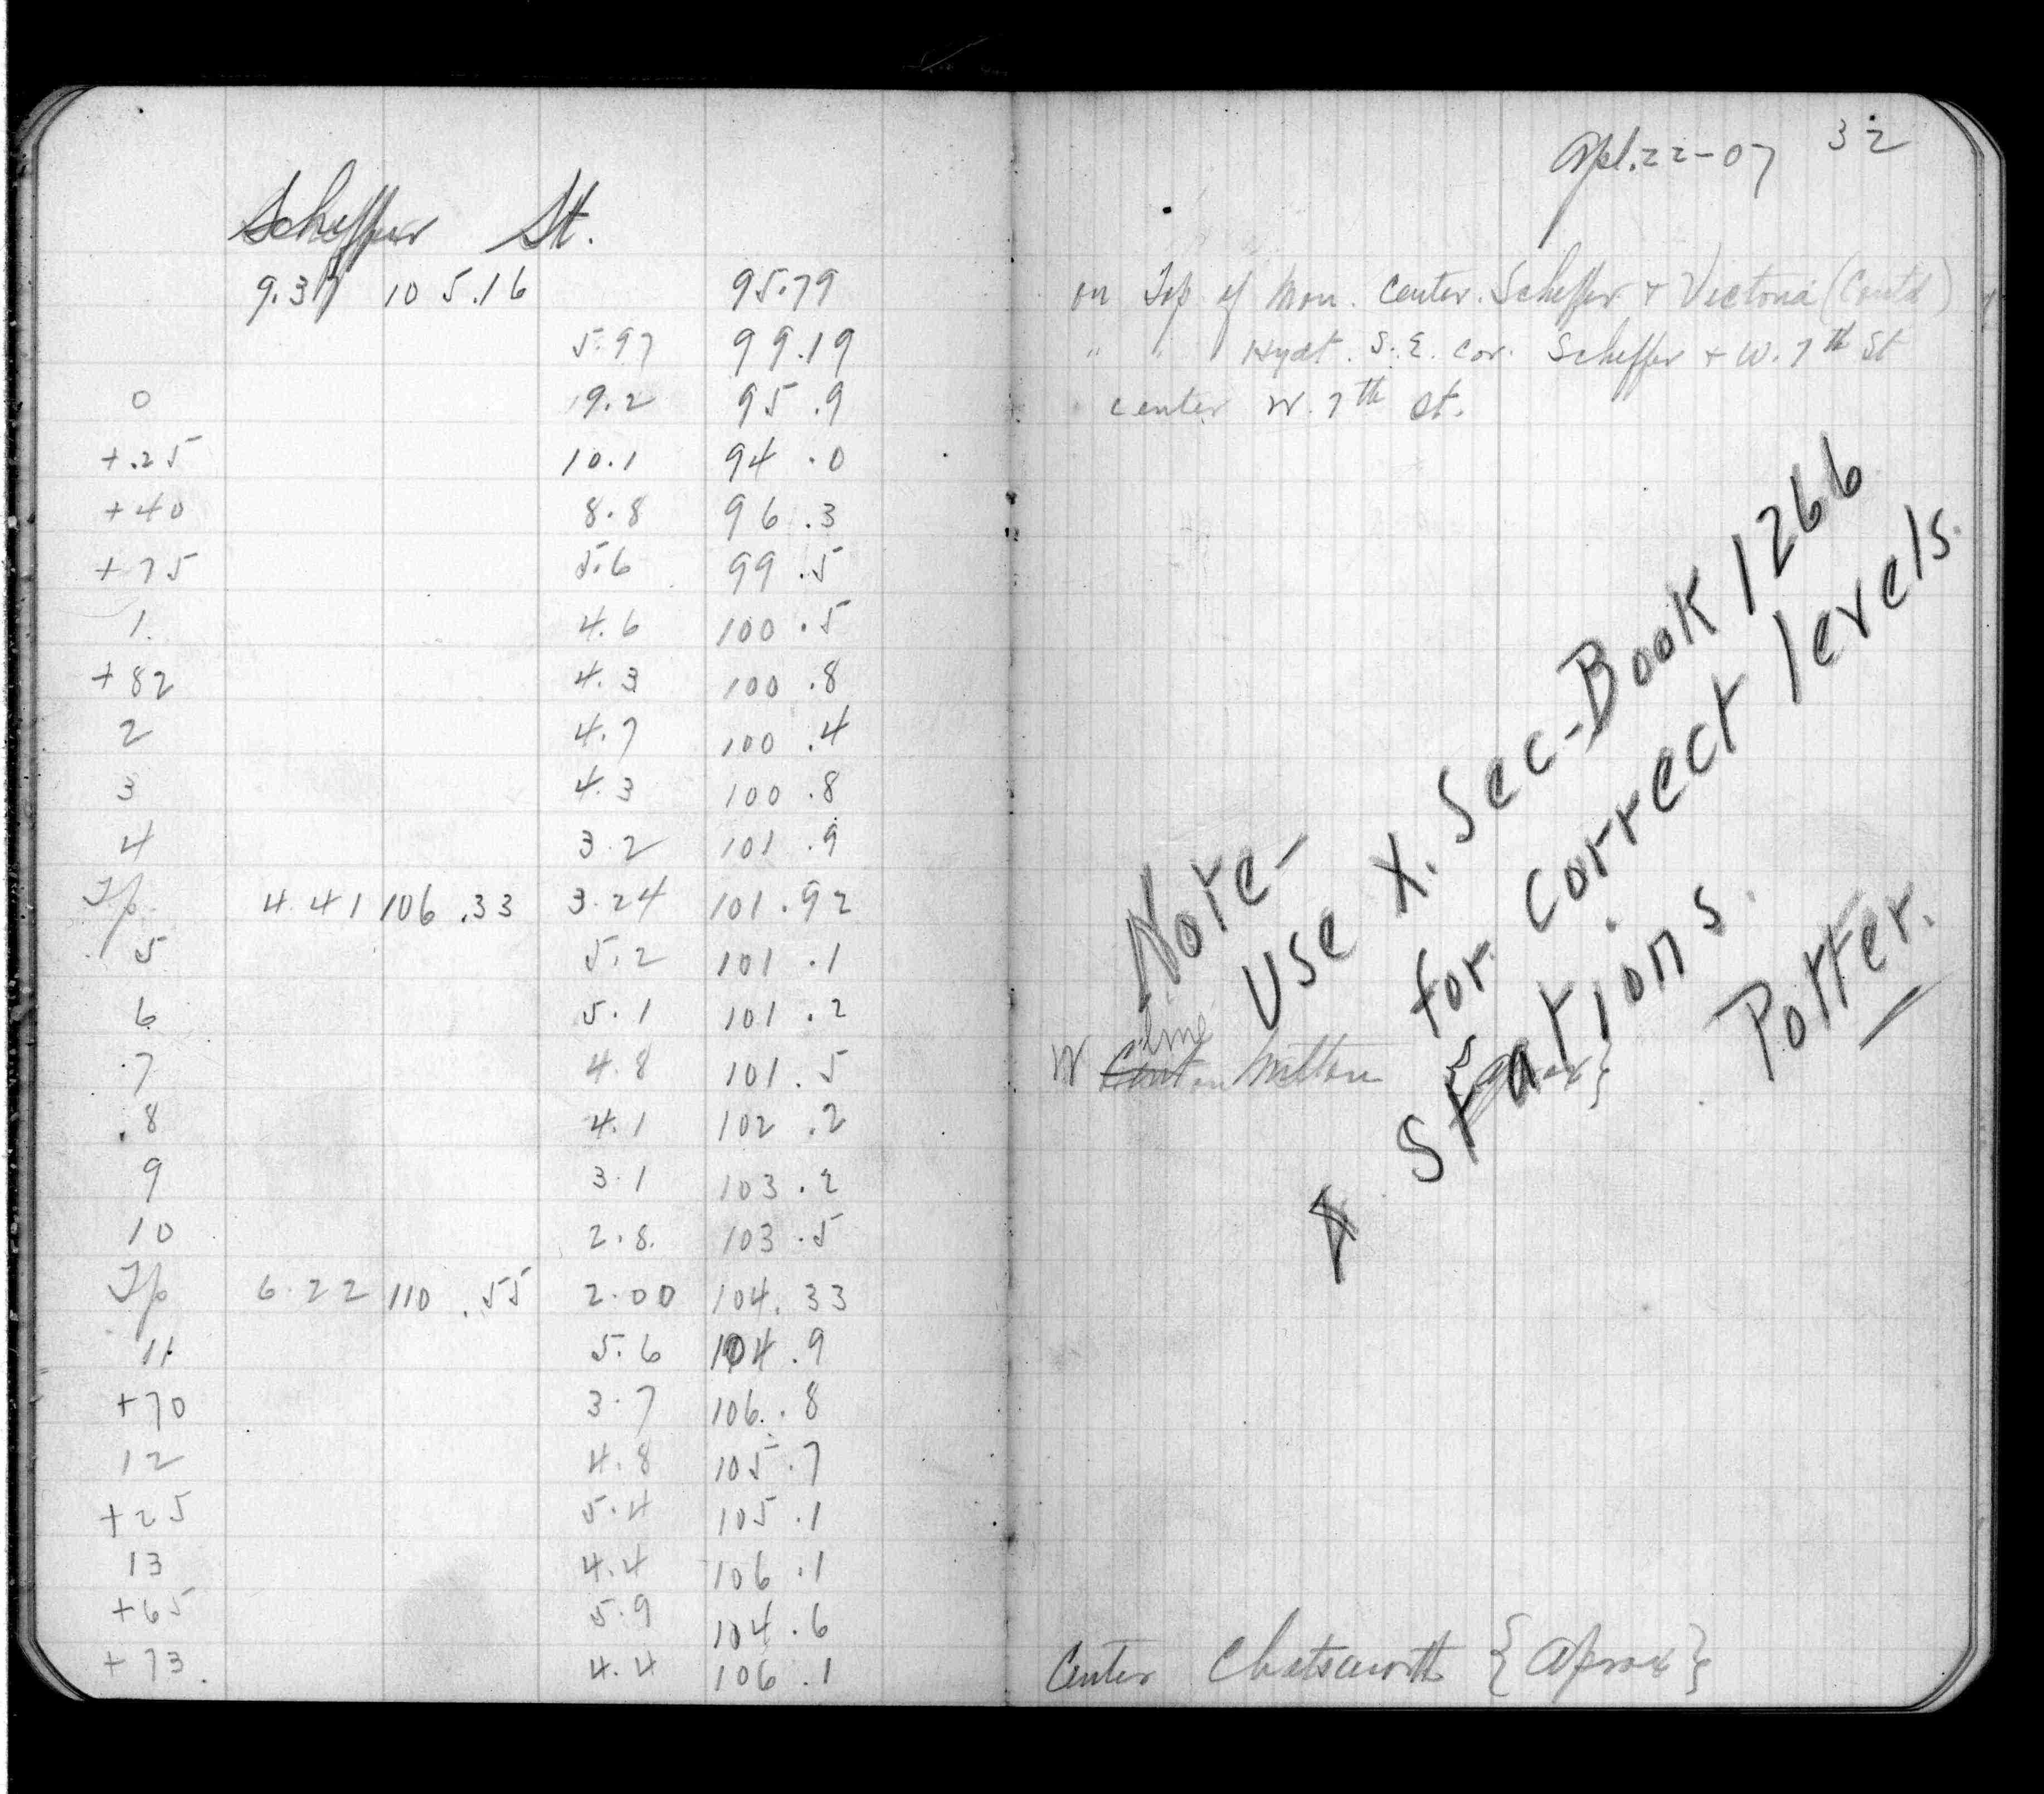 Scheffer St.
9.37 105.16 95.79
5.97 99.19
0 9.2 95.9
+.25 10.1 94.0
+40 8.8 96.3
+75 5.6 99.5
1. 4.6 100.5
+82 4.3 100.8
2 4.7 100.4
3 4.3 100.8
4 3.2 101.9
Tp. 4.41 106.33 3.24 101.92
5 5.2 101.1
6 5.1 101.2
7 4.8 101.5
8 4.1 102.2
9 3.1 103.2
10 2.8 103.5
Tp 6.22 110.55 2.00 104.33
11 5.6 104.9
+70 3.7 106.8
12 4.8 105.7
+25 5.4 105.1
13 4.4 106.1
+65 5.9 104.6
+73. 4.4 106.1
Apl. 22-07 32
on Top of Mon. Center. Scheffer + Victoria (Contd)
" " Hydt. S.E. cor. Scheffer + W. 7th St
center W. 7th St.
Note-
Use X. Sec-Book 1266
for correct levels
& Stations.
Potter.
W line on Milton
Center Chatsworth {Aprox}